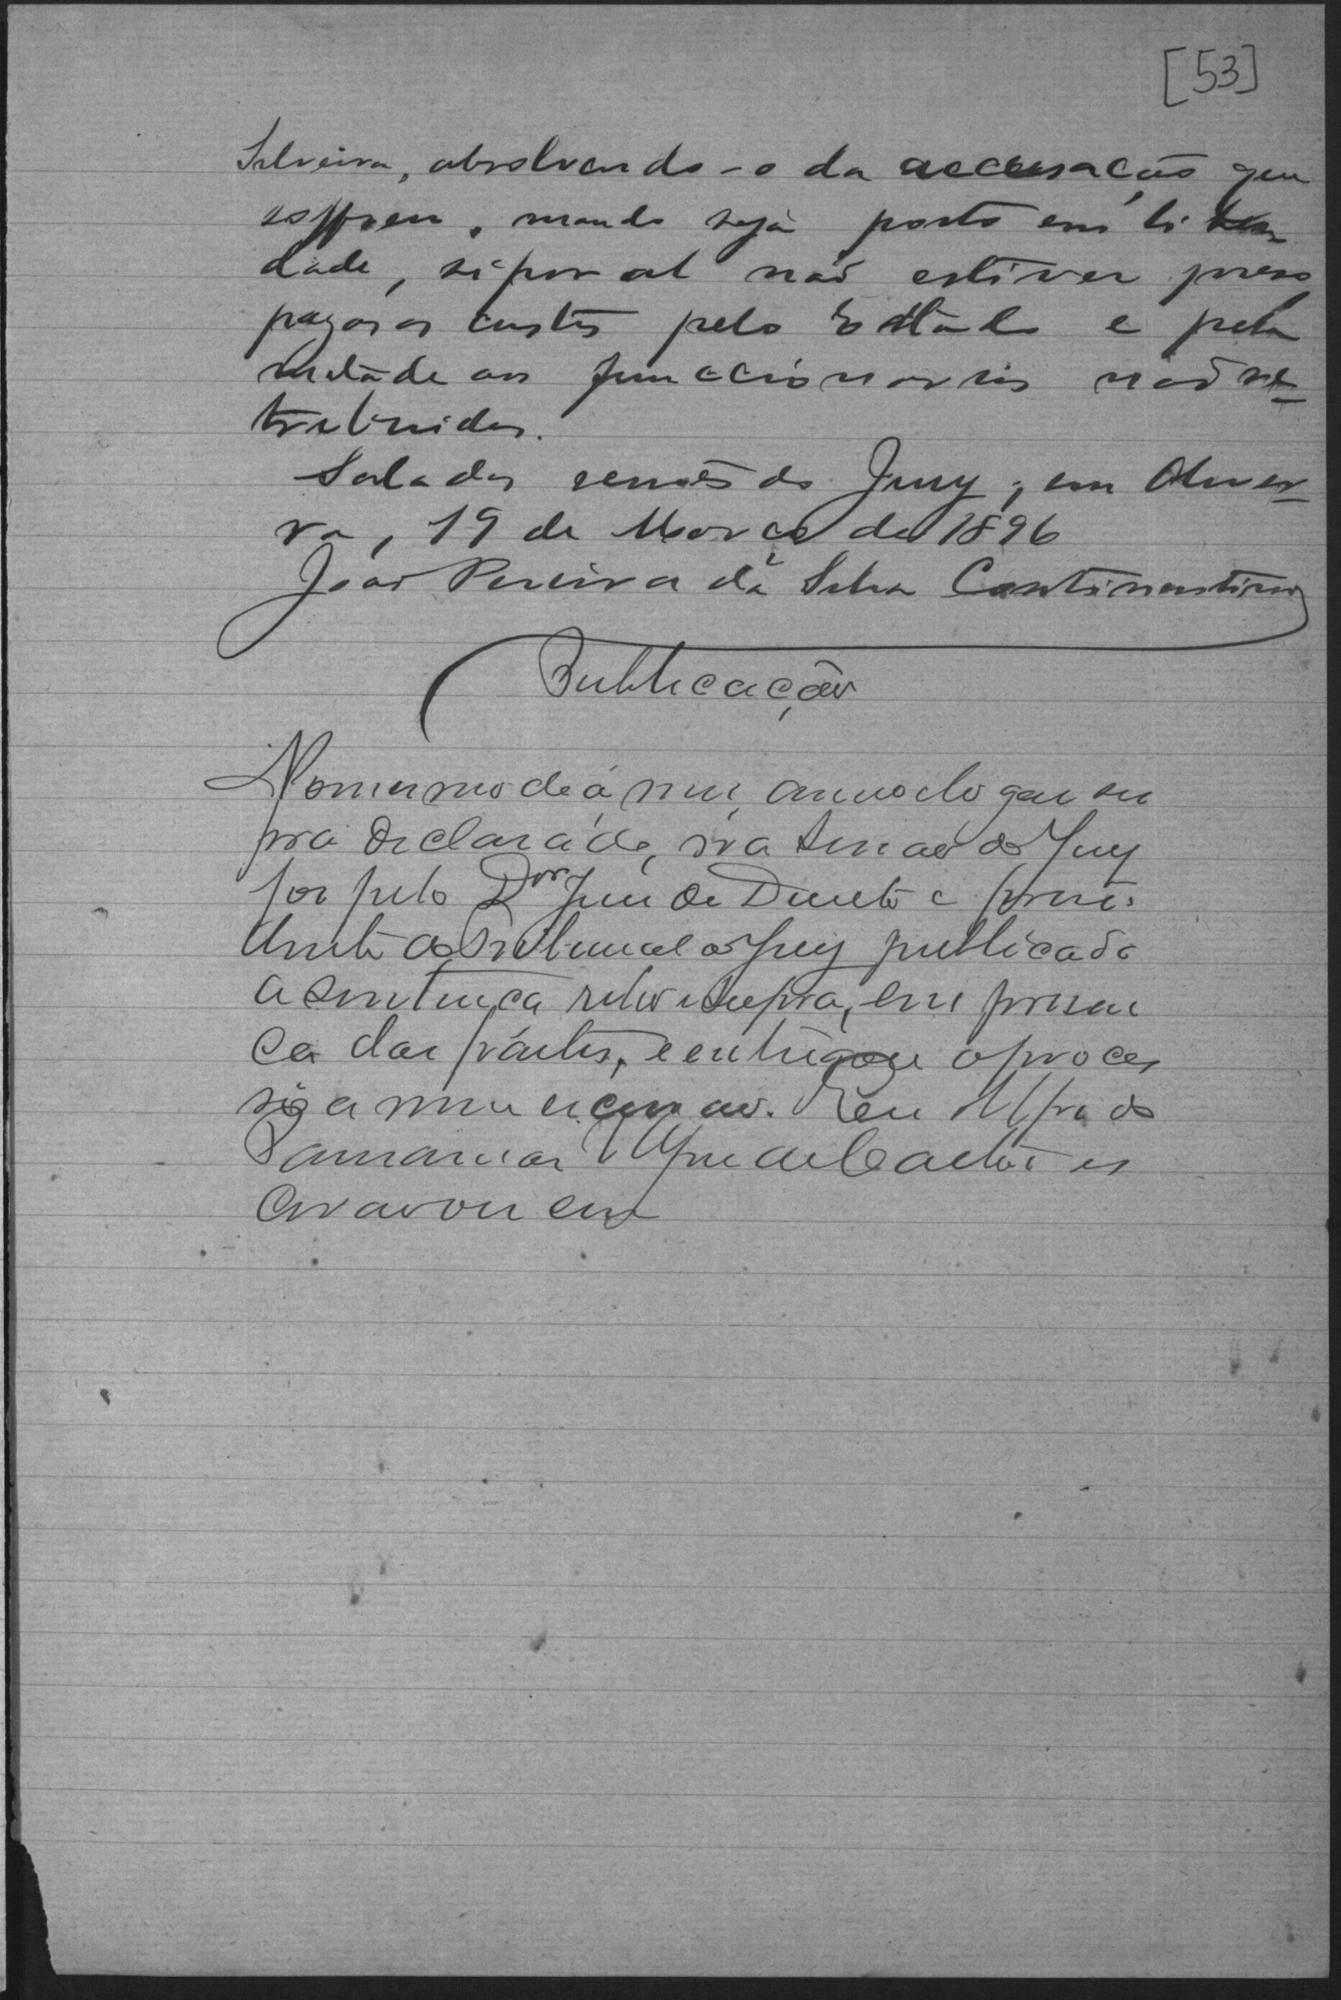 [53]
Silveira, absolvendo-o da accusação que
soffreu, mando seja posto em liber
dade, si por al não estiver preso,
pagas as custas pelo Estado e pela
metade aos funccionarios não re-
tribuidos.
Sala das sessões do Jury, em Olivei-
ra, 19 de Março de 1896
João Pereira da Silva Continentino
Publicação
No mesmo dia mez anno e logar su
pra declarado, na sessão do Jury
foi pelo Dor Juiz de Direito e presi-
dente do Tribunal do Jury publicada
a sentença retro e supra, em presen
ça das partes, e entregue o proces
so a mim escrivão. Eu Alfredo
de Castro es
crivão o escrevi